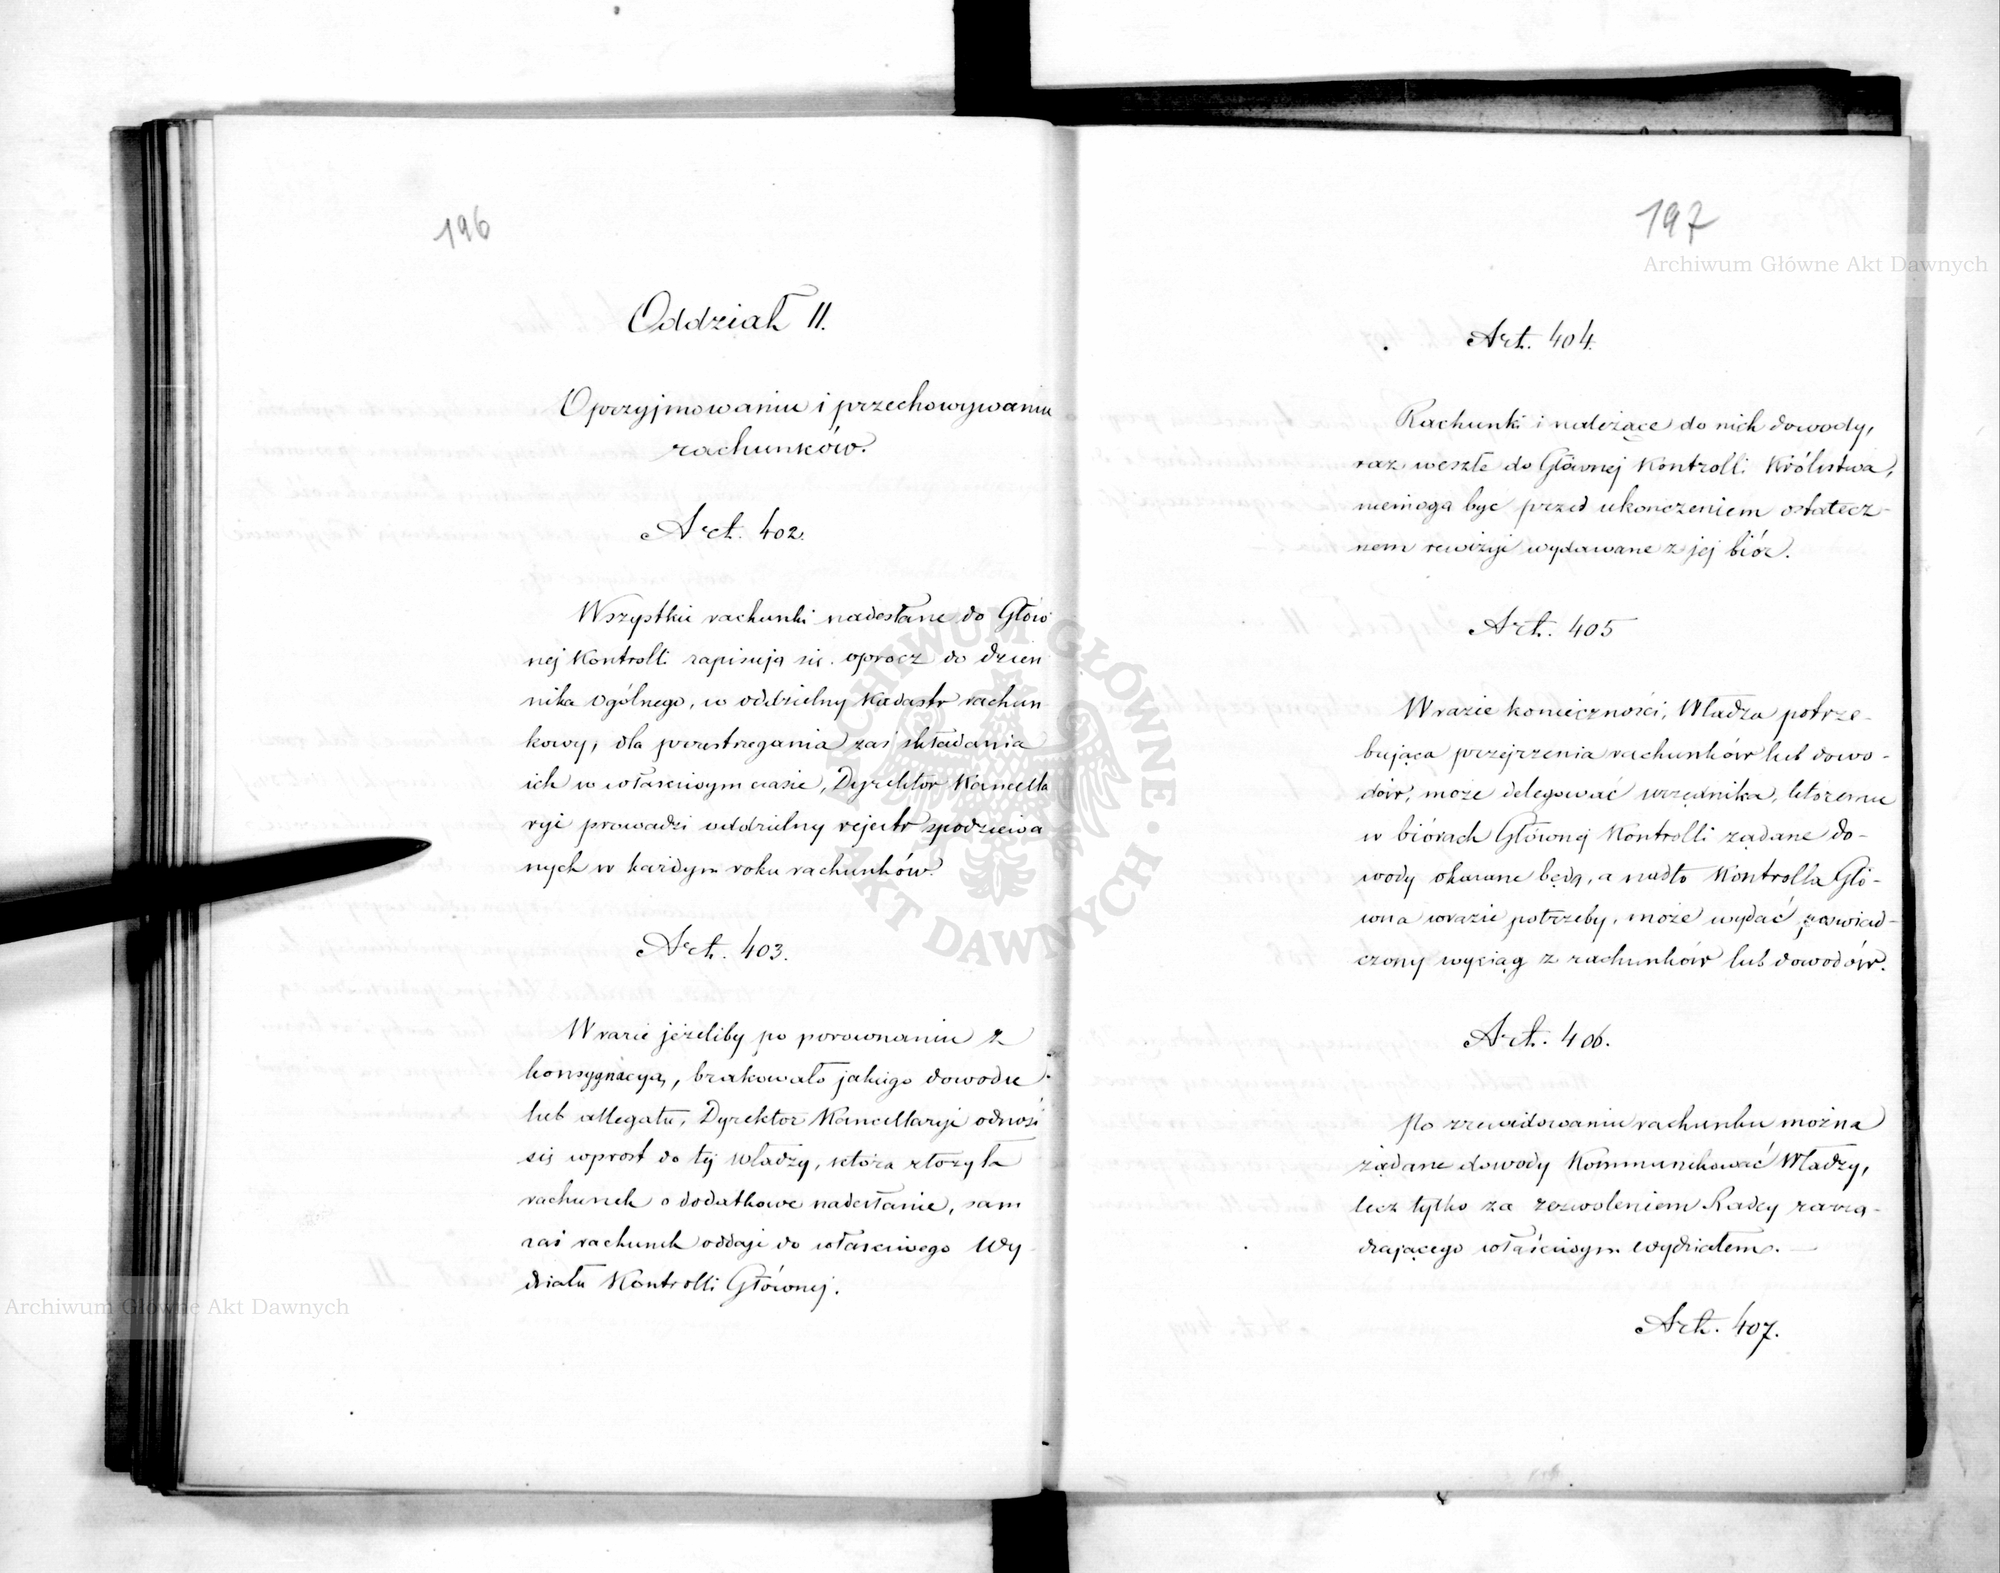 196
Oddział II.
O przyjmowaniu i przechowywaniu
rachunków.
Art. 402.
Wszystkie rachunki nadesłane do Głów
nej Kontrolli zapisują się oprocz do dzien
nika ogólnego, w oddzielny Kadastr rachun
kowy, dla przestrzegania zaś składania
ich w właściwym czasie, Dyrektor Kancella
ryi prowadzi oddzielny rejestr spodziewa
nych w każdym roku rachunków.
Art. 403.
W razie jeżeliby po porownaniu z
konsygnacyą, brakowało jakiego dowodu
lub allegatu, Dyrektor Kancellaryi odnosi
się wprost do tej Władzy, która złożyła
rachunek o dodatkowe nadesłanie, sam
zaś rachunek oddaje do właściwego Wy
działu Kontrolli Głównej.
197
Art. 404.
Rachunki i należące do nich dowody,
raz weszłe do Głównej Kontrolli Królestwa,
niemogą być przed ukończeniem ostatecz-
nem rewizyi wydawane z jej biór.
Art. 405
W razie konieczności, Władza potrze-
bująca przejrzenia rachunków lub dowo-
dów, może delegować urzędnika, któremu
w biórach Głównej Kontrolli żądane do-
wody okazane będą, a nadto Kontrolla Głó-
wna w razie potrzeby, może wydać zaświad-
czony wyciąg z rachunków lub dowodów.
Art. 406.
Po zrewidowaniu rachunku można
żądane dowody Kommunikować Władzy,
lecz tylko za zezwoleniem Radcy zarzą-
dzającego właściwym wydziałem. —
Art. 407.
Archiwum Główne Akt Dawnych
Archiwum Główne Akt Dawnych
ARCHIWUM GŁÓWNE AKT DAWNYCH